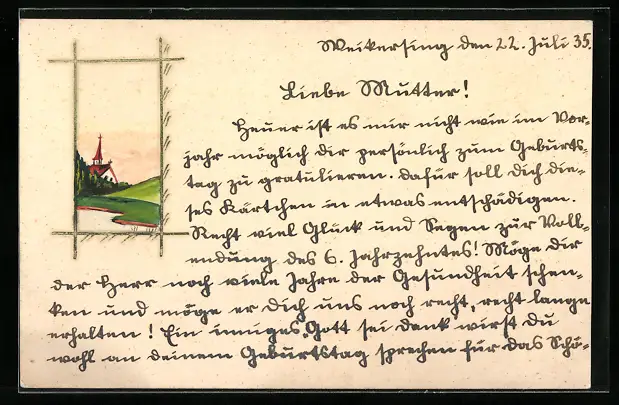 Weikersing den 22. Juli 35.
Liebe Mutter!
Heuer ist es mir nicht wie im Vor-
jahr möglich dir persönlich zum Geburts-
tag zu gratulieren. Dafür soll Dich die-
ses Kärtchen in etwas entschädigen.
Recht viel Glück und Segen zur Voll-
endung des 6. Jahrzehntes! Möge Dir
der Herr noch viele Jahre der Gesundheit schen-
ken und möge er Dich uns noch recht, recht lange
erhalten! Ein inniges „Gott sei dank" wirst Du
wohl an deinem Geburtstag sprechen für das Schö-